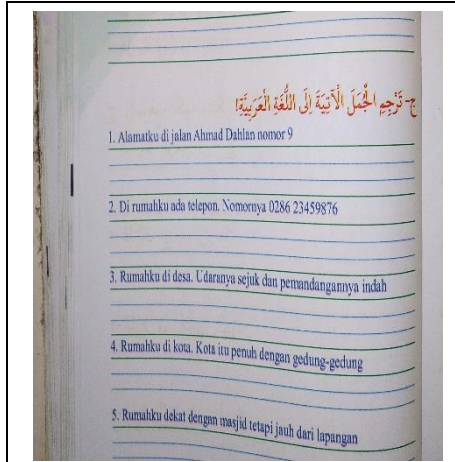 ج- تَرْجِمِ الْجُمَلَ الْآتِيَةَ إِلَى اللُّغَةِ الْعَرَبِيَّةِ!
1. Alamatku di jalan Ahmad Dahlan nomor 9
2. Di rumahku ada telepon. Nomornya 0286 23459876
3. Rumahku di desa. Udaranya sejuk dan pemandangannya indah
4. Rumahku di kota. Kota itu penuh dengan gedung-gedung
5. Rumahku dekat dengan masjid tetapi jauh dari lapangan